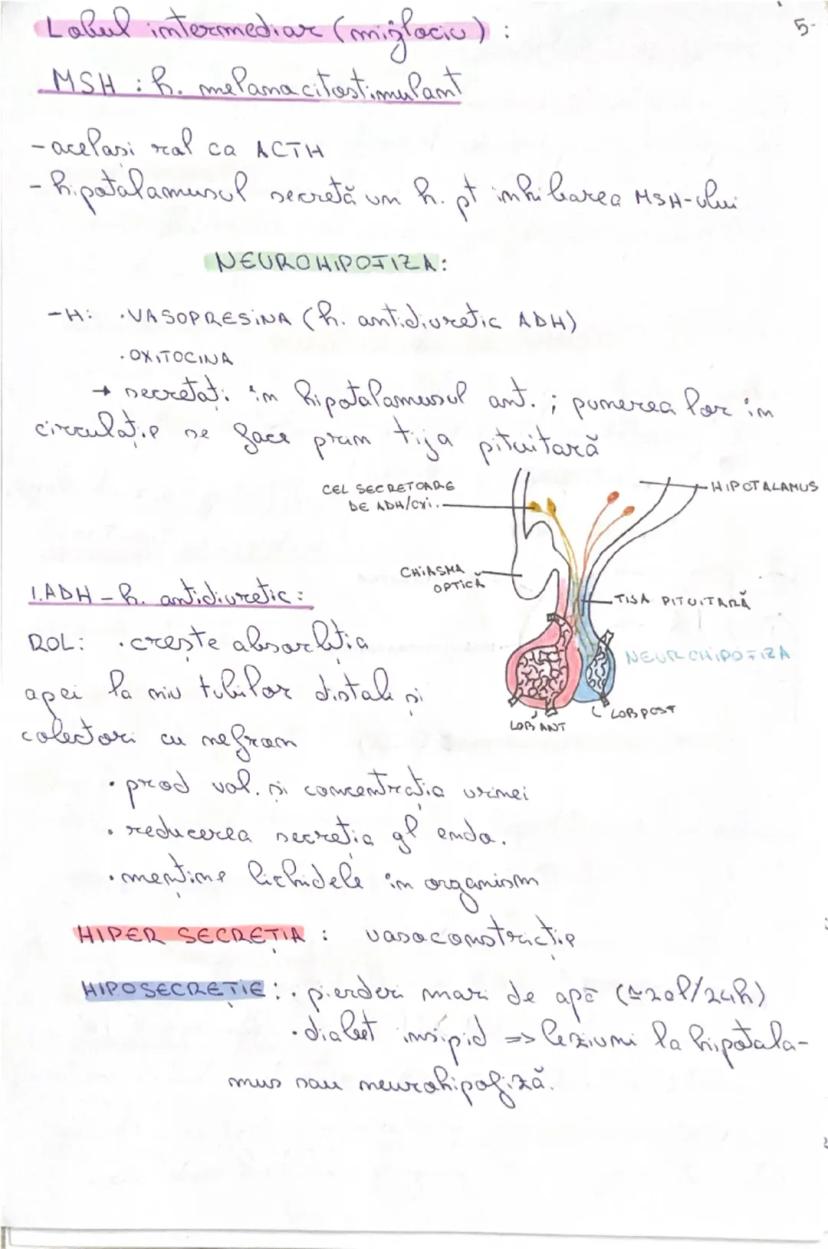 5.
Lobul intermediar (mijlociu) :
MSH : h. melanocitostimulant
- același rol ca ACTH
- hipotalamusul secretă un h. pt inhibarea MSH-ului
NEUROHIPOFIZA:
- H: • VASOPRESINA (h. antidiuretic ADH)
• OXITOCINA
→ secretați în hipotalamusul ant. ; punerea lor în
circulație se face prin tija pituitară
CEL SECRETOARE
DE ADH/OXI.
HIPOTALAMUS
CHIASMA
OPTICĂ
TIJA PITUITARĂ
NEUROHIPOFIZA
LOB ANT
LOB POST
1. ADH - h. antidiuretic :
ROL: • crește absorbția
apei la niv tubilor distali și
colectori cu nefron
• prod vol. și concentrația urinei
• reducerea secreția gl endo.
• menține lichidele în organism
HIPER SECREȚIA : vasoconstricție
HIPOSECREȚIE : • pierderi mari de apă (≃20l/24h)
• diabet insipid => leziuni la hipotala-
mus sau neurohipofiză.